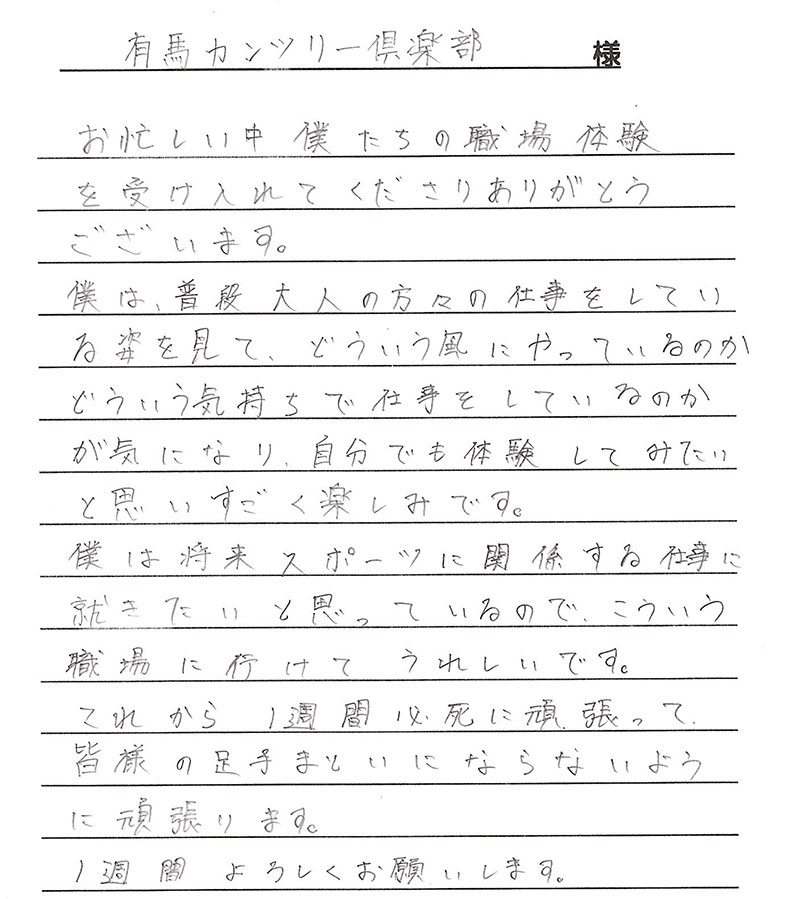 有馬カンツリー倶楽部 様
お忙しい中 僕たちの職場体験
を受け入れてくださりありがとう
ございます。
僕は、普段大人の方々の仕事をしてい
る姿を見て、どういう風にやっているのか
どういう気持ちで仕事をしているのか
が気になり、自分でも体験してみたい
と思いすごく楽しみです。
僕は将来スポーツに関係する仕事に
就きたいと思っているので、こういう
職場に行けてうれしいです。
これから1週間必死に頑張って、
皆様の足手まといにならないよう
に頑張ります。
1週間よろしくお願いします。